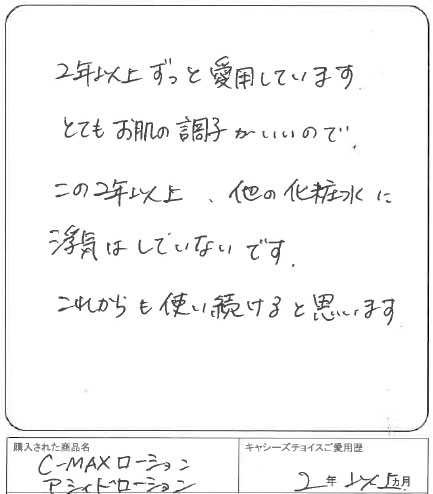 2年以上 ずっと 愛用しています.
とても お肌の 調子がいいので、
この2年以上 、他の化粧水に
浮気はしていないです.
これからも使い続けると思います
購入された商品名
C-MAXローション
アシィドローション
キャシーズチョイスご愛用歴
2年 以上ヵ月